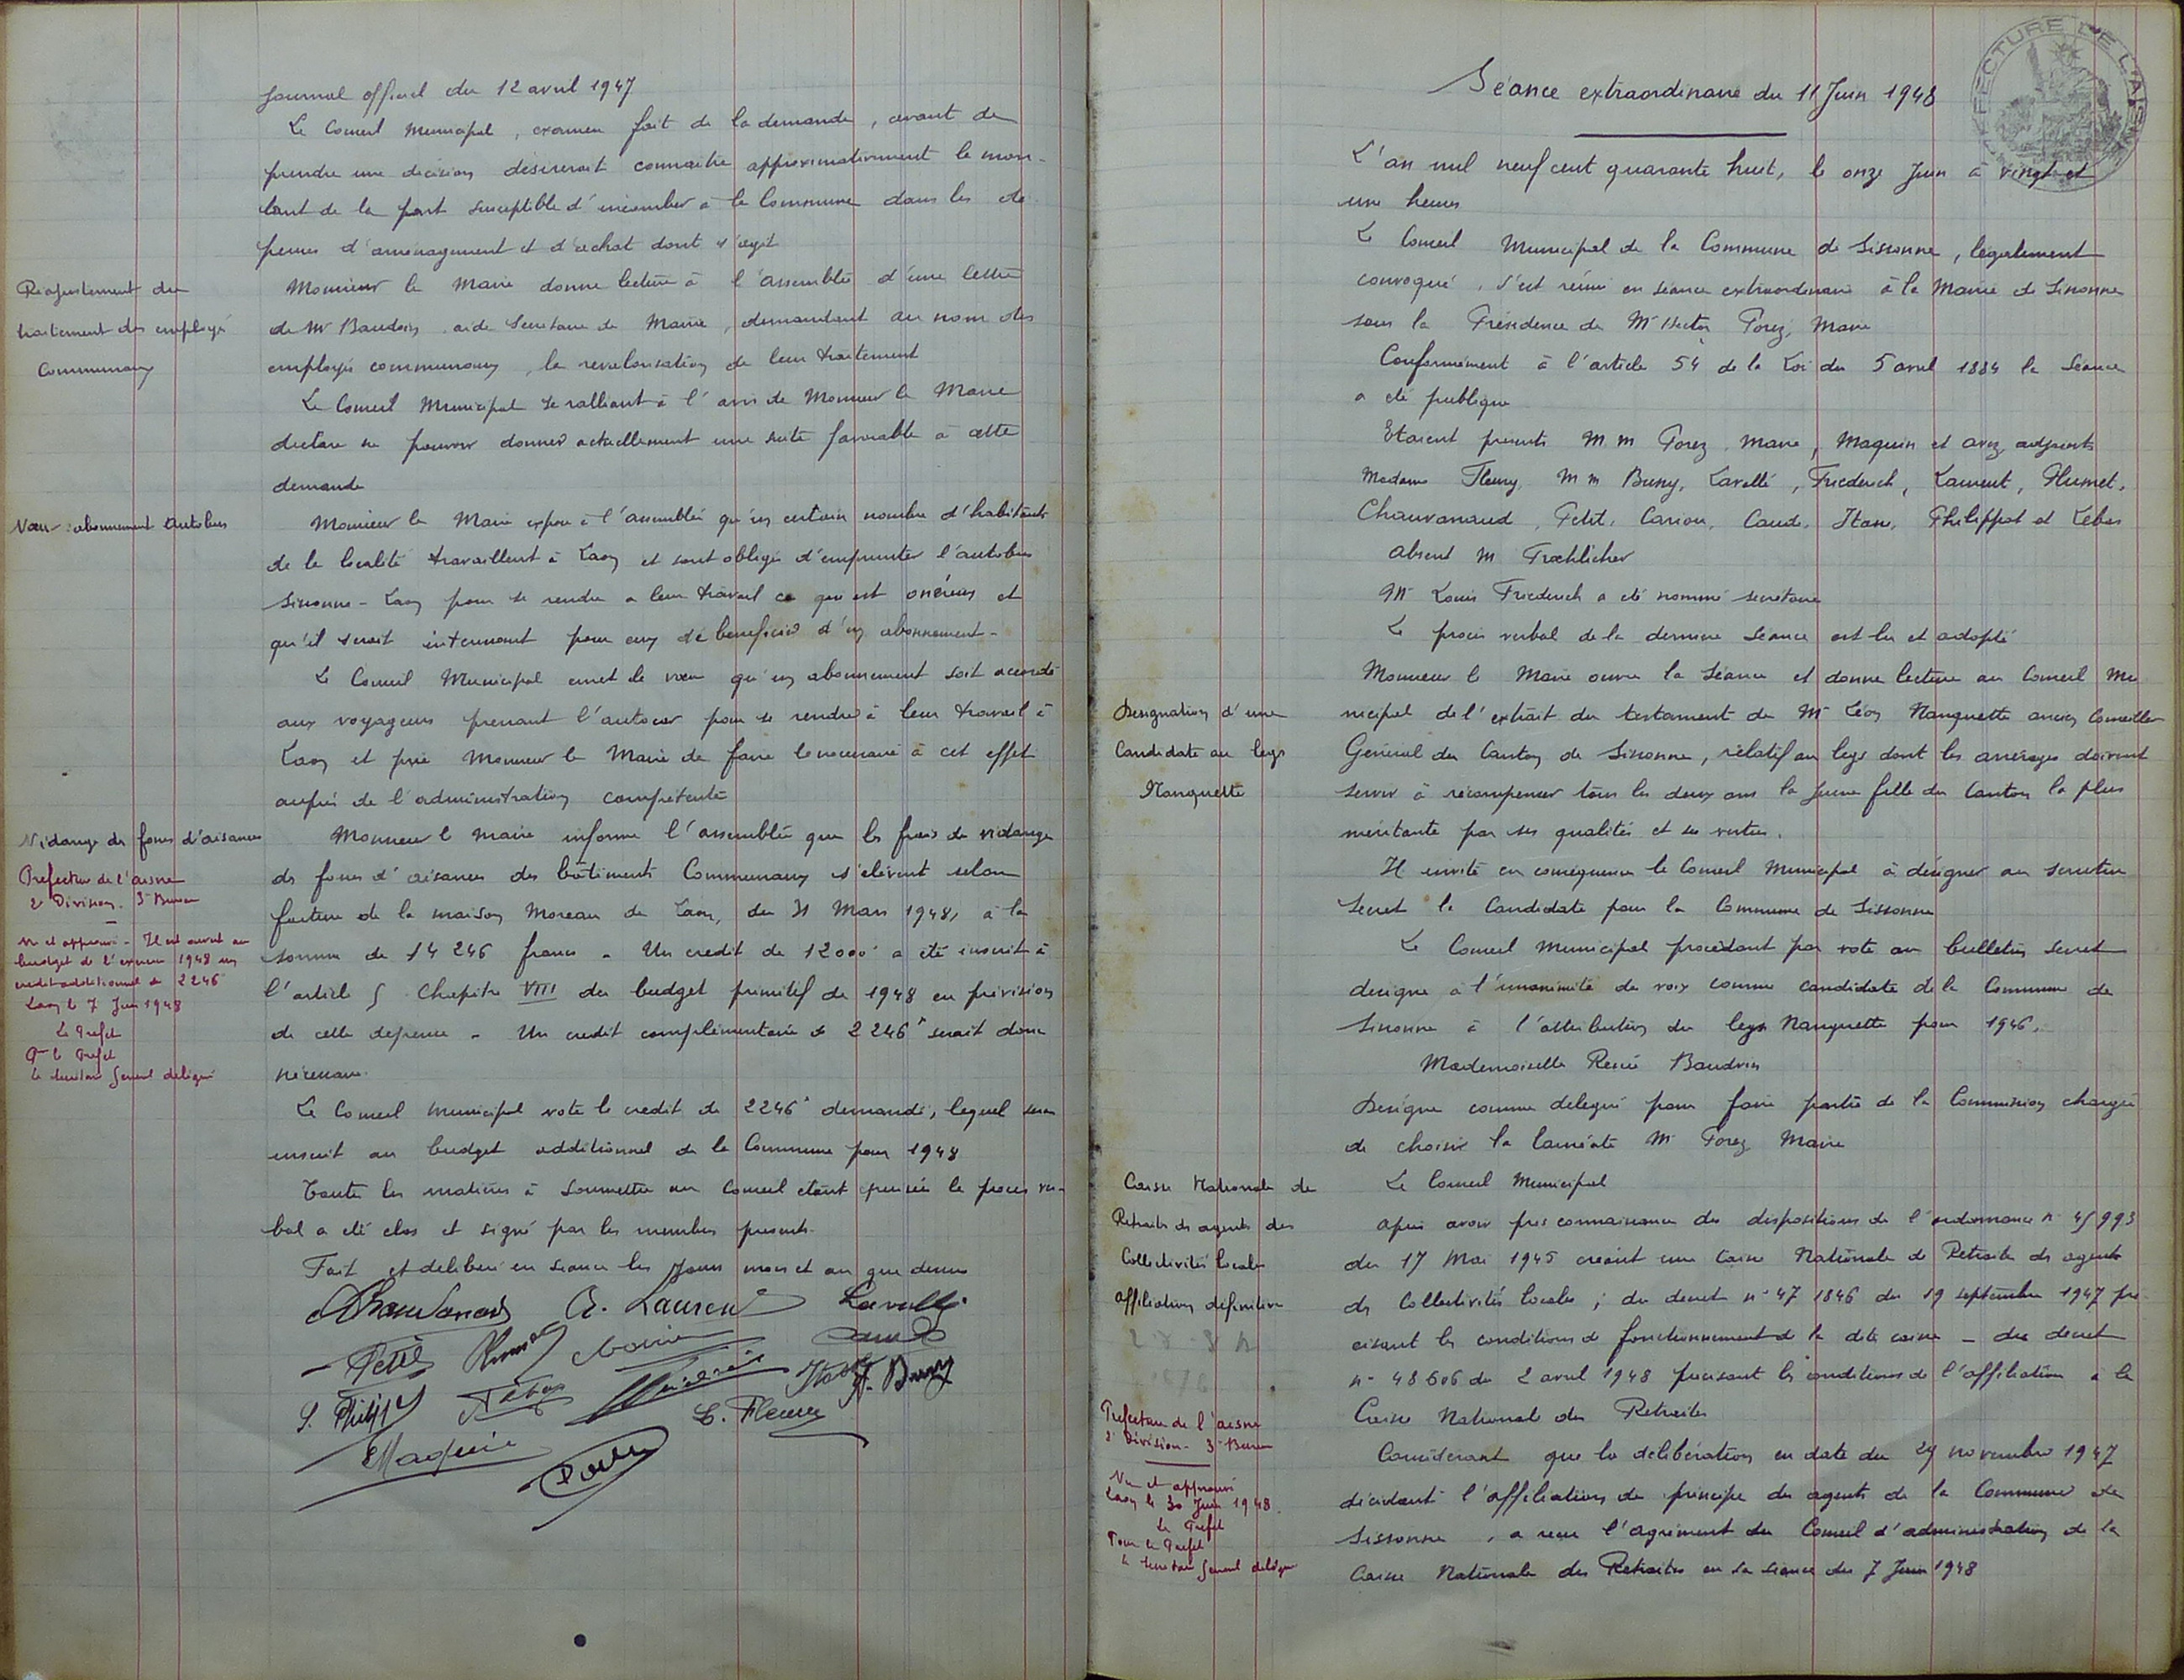 Journal officiel du 12 avril 1947
Le Conseil Municipal, examen fait de la demande, avant de
prendre une décision désirerait connaître approximativement le mon-
tant de la part susceptible d'incomber à la Commune dans les dé
penses d'aménagement et d'achat dont s'agit
Réajustement du
traitement des employés
Communaux
Monsieur le Maire donne lecture à l'assemblée d'une lettre
de Mr Baudoin aide Secrétaire de Mairie, demandant au nom des
employés communaux, la revalorisation de leur traitement
Le Conseil Municipal se ralliant à l'avis de Monsieur le Maire
déclare ne pouvoir donner actuellement une suite favorable à cette
demande
Vœu : abonnement autobus
Monsieur le Maire expose à l'assemblée qu'un certain nombre d'habitants
de la localité travaillent à Laon et sont obligés d'emprunter l'autobus
Sissonne - Laon pour se rendre a leur travail ce qui est onéreux et
qu'il serait intéressant pour eux de bénéficier d'un abonnement -
Le Conseil Municipal émet le vœu qu'un abonnement soit accordé
aux voyageurs prenant l'autocar pour se rendre à leur travail à
Laon et prie Monsieur le Maire de faire le nécessaire à cet effet
auprès de l'administration compétente
Vidange des fosses d'aisances
Monsieur le Maire informe l'assemblée que les frais de vidange
des fosses d'aisances des bâtiments Communaux s'élèvent selon
facture de la maison Moreau de Laon, du 31 Mars 1948, à la
somme de 14 246 francs - Un crédit de 12000 a été inscrit à
l'article 5 Chapitre VIII du budget primitif de 1948 en prévision
de cette dépense - Un crédit complémentaire de 2246 f serait donc
nécessaire.
Préfecture de l'Aisne
2e Division. 3e Bureau
Vu et approuvé - Il est ouvert au
budget de l'exercice 1948 un
crédit additionnel de 2246
Laon le 7 Juin 1948
Le Préfet
Pr le Préfet
le secrétaire général délégué
Le Conseil Municipal vote le crédit de 2246 f demandé, lequel sera
inscrit au budget additionnel de la Commune pour 1948
Toutes les matières à soumettre au Conseil étant épuisées le procès ver-
bal a été clos et signé par les membres présents.
Fait et délibéré en séance les jours mois et an que dessus
Chauvanaud A. Laurent Lavallé
Petit Carion Caudé
S. Philippot Lebas Friederich Itasse A. Buny
Maquin E. Fleury
Porez
PREFECTURE DE L'AISNE
Séance extraordinaire du 11 Juin 1948
L'an mil neuf cent quarante huit, le onze Juin à vingt et
une heures
Le Conseil Municipal de la Commune de Sissonne, légalement
convoqué, s'est réuni en séance extraordinaire à la Mairie de Sissonne
sous la Présidence de Mr Hector Porez, Maire
Conformément à l'article 54 de la Loi du 5 avril 1884 la Séance
a été publique
Etaient présents M.M Porez Maire, Maquin et Avez adjoints
Madame Fleury, MM Buny, Lavallé, Friederich, Laurent, Plumet,
Chauvanaud, Petit, Carion, Caudé, Itasse, Philippot et Lebas
Absent M Froehlicher
Mr Louis Friederich a été nommé secrétaire
Le procès verbal de la dernière Séance est lu et adopté
Désignation d'une
Candidate au legs
Nanquette
Monsieur le Maire ouvre la Séance et donne lecture au Conseil Mu
nicipal de l'extrait du testament de Mr Léon Nanquette ancien Conseiller
Général du Canton de Sissonne, relatif au legs dont les arrérages doivent
servir à récompenser tous les deux ans la jeune fille du Canton la plus
méritante par ses qualités et ses vertus.
Il invite en conséquence le Conseil Municipal à désigner au scrutin
secret la Candidate pour la Commune de Sissonne
Le Conseil Municipal procédant par vote au bulletin secret
désigne à l'unanimité des voix comme candidate de la Commune de
Sissonne à l'attribution du legs Nanquette pour 1946.
Mademoiselle Renée Baudoin
Désigne comme délégué pour faire partie de la Commission chargée
de choisir la lauréate Mr Porez Maire
Caisse Nationale de
Retraites des agents des
Collectivités locales
Affiliation définitive
Le Conseil Municipal
Après avoir pris connaissance des dispositions de l'ordonnance n° 45 993
du 17 Mai 1945 créant une Caisse Nationale de Retraites des agents
des Collectivités locales ; du décret n° 47 1846 du 19 septembre 1947 pré
cisant les conditions de fonctionnement de la dite caisse - du décret
n° 48 606 du 2 avril 1948 précisant les conditions de l'affiliation à la
Caisse Nationale des Retraites
Préfecture de l'Aisne
2e Division - 3e Bureau
Vu et approuvé
Laon le 30 Juin 1948.
Le Préfet
Pour le Préfet
le secrétaire général délégué
Considérant que la délibération en date du 29 novembre 1947
décidant l'affiliation de principe des agents de la Commune de
Sissonne, a reçu l'agrément du Conseil d'administration de la
Caisse Nationale des Retraites en sa séance du 7 Juin 1948